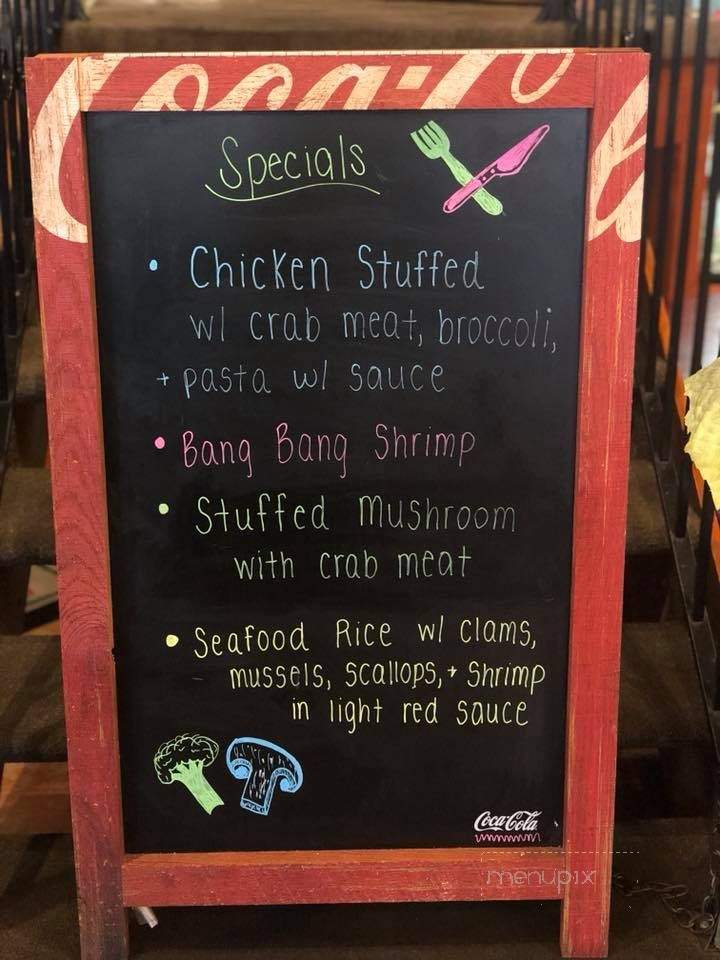 Coca-Cola
Specials
• Chicken Stuffed
w/ crab meat, broccoli,
+ pasta w/ sauce
• Bang Bang Shrimp
• Stuffed Mushroom
with crab meat
• Seafood Rice w/ clams,
mussels, scallops, + Shrimp
in light red sauce
Coca-Cola
menupix